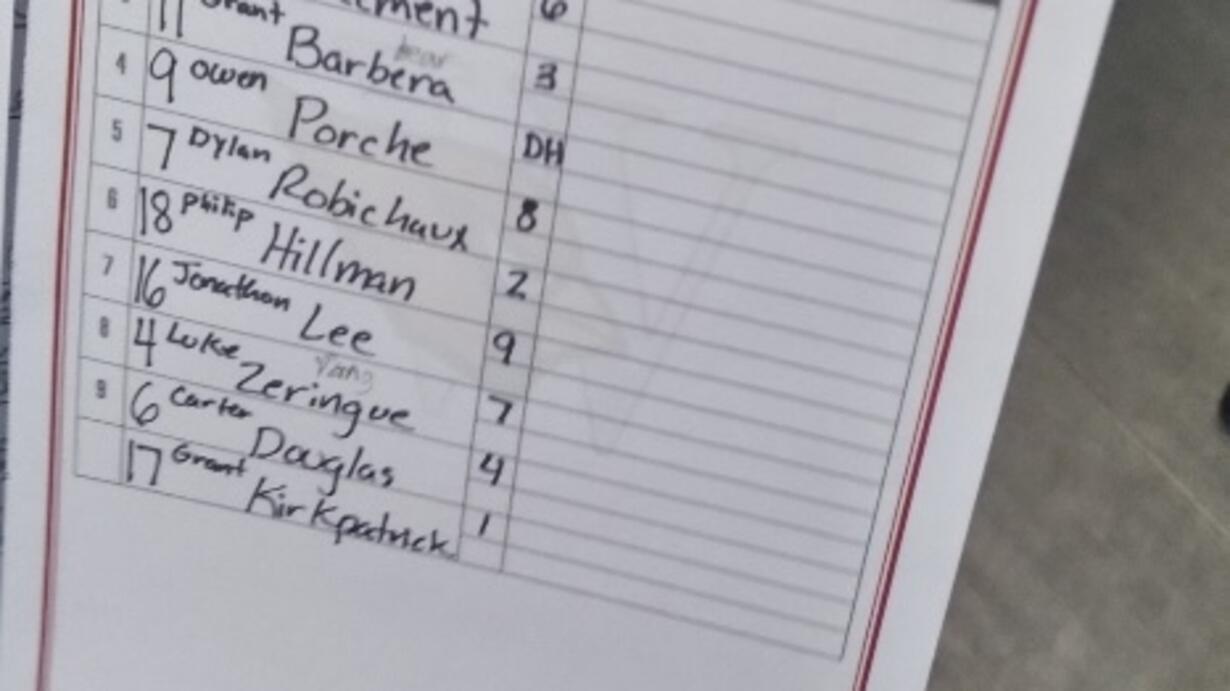 6
11 Grant Barbera 3
bear
4 9 Owen Porche DH
5 7 Dylan Robichaux 8
6 18 Philip Hillman 2
7 16 Jonathon Lee 9
Yang
8 4 Luke Zeringue 7
9 6 Carter Douglas 4
17 Grant Kirkpatrick 1